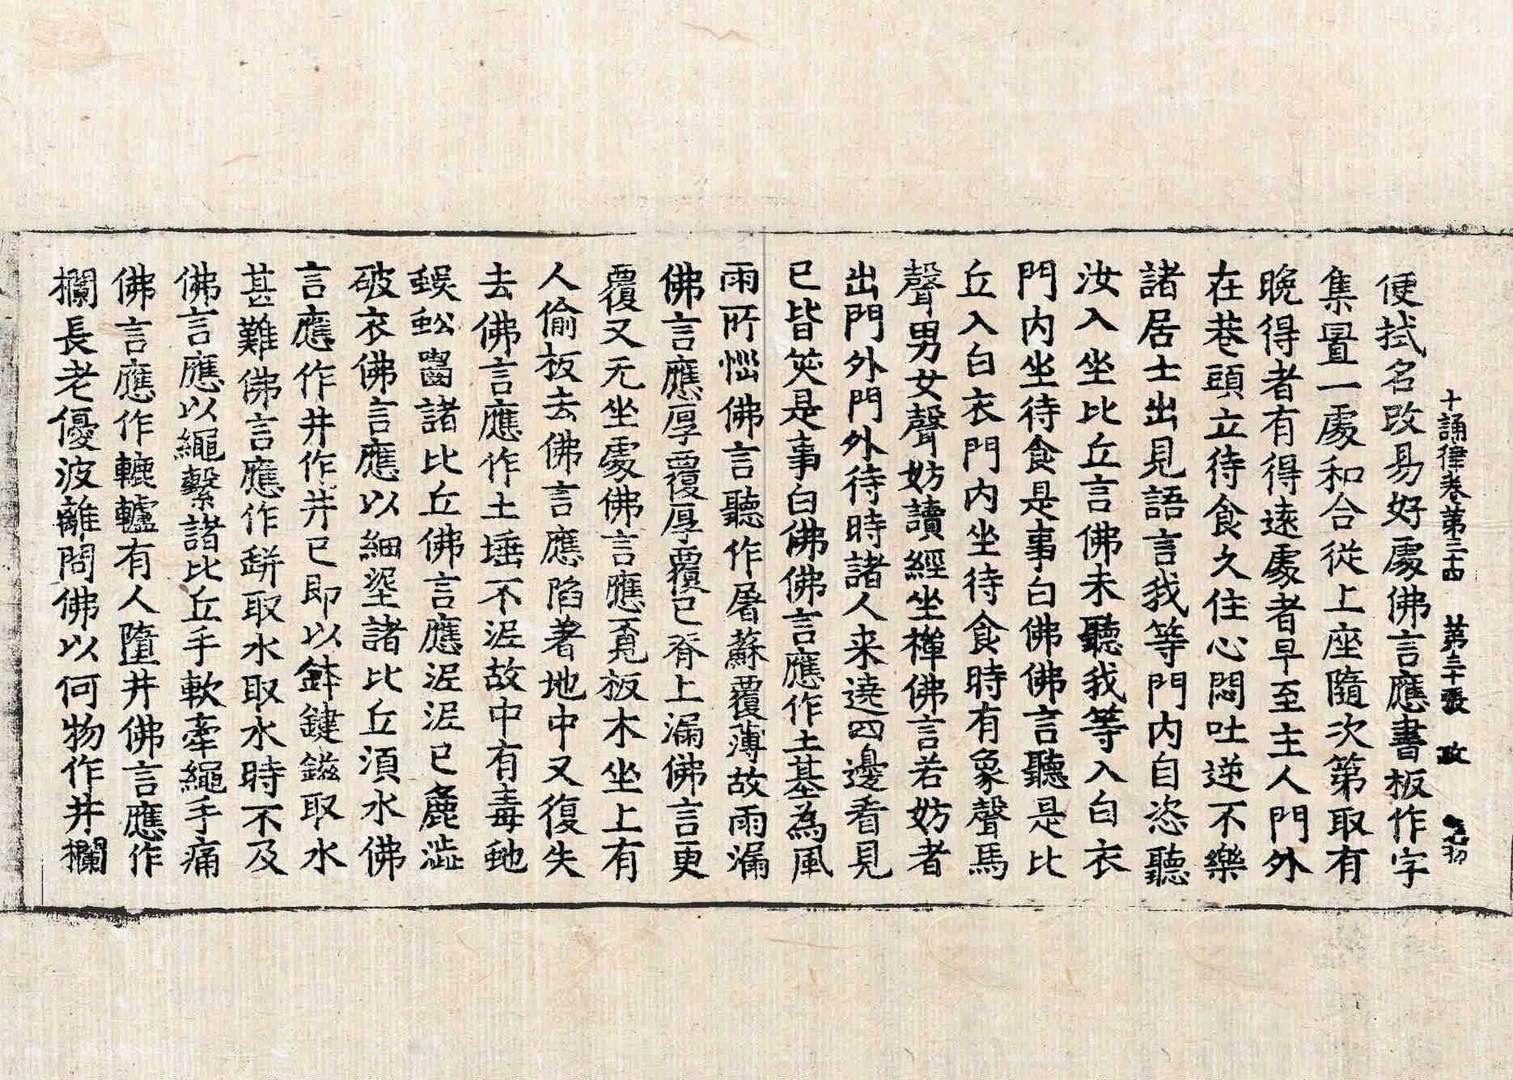 十誦律卷第三十四 第二十張 政
便拭名改易好處佛言應書板作字
集置一處和合從上座隨次第取有
晚得者有得遠處者早至主人門外
在巷頭立待食久住心悶吐逆不樂
諸居士出見語言我等門內自恣聽
汝入坐比丘言佛未聽我等入白衣
門內坐待食是事白佛佛言聽是比
丘入白衣門內坐待食時有象聲馬
聲男女聲聲妨讀經坐禪佛言若妨者
出門外門外待時諸人来遶四邊看見
已皆笑是事白佛佛言應作土基為風
雨所惱佛言聽作屠蘇覆薄故雨漏
佛言應厚覆厚覆已脊上漏佛言更
覆又无坐處佛言應覓板木坐上有
人偷板去佛言應陷著地中又復失
去佛言應作土埵不泥故中有毒虵
蜈蚣齧諸比丘佛言應泥泥已麁澁
破衣佛言應以細埿諸比丘湏水佛
言應作井作井已即以鉢鍵鎡取水
甚難佛言應作缾取水取水時不及
佛言應以繩繫諸比丘手軟牽繩手痛
佛言應作轆轤有人墮井佛言應作
欄長老優波離問佛以何物作井欄